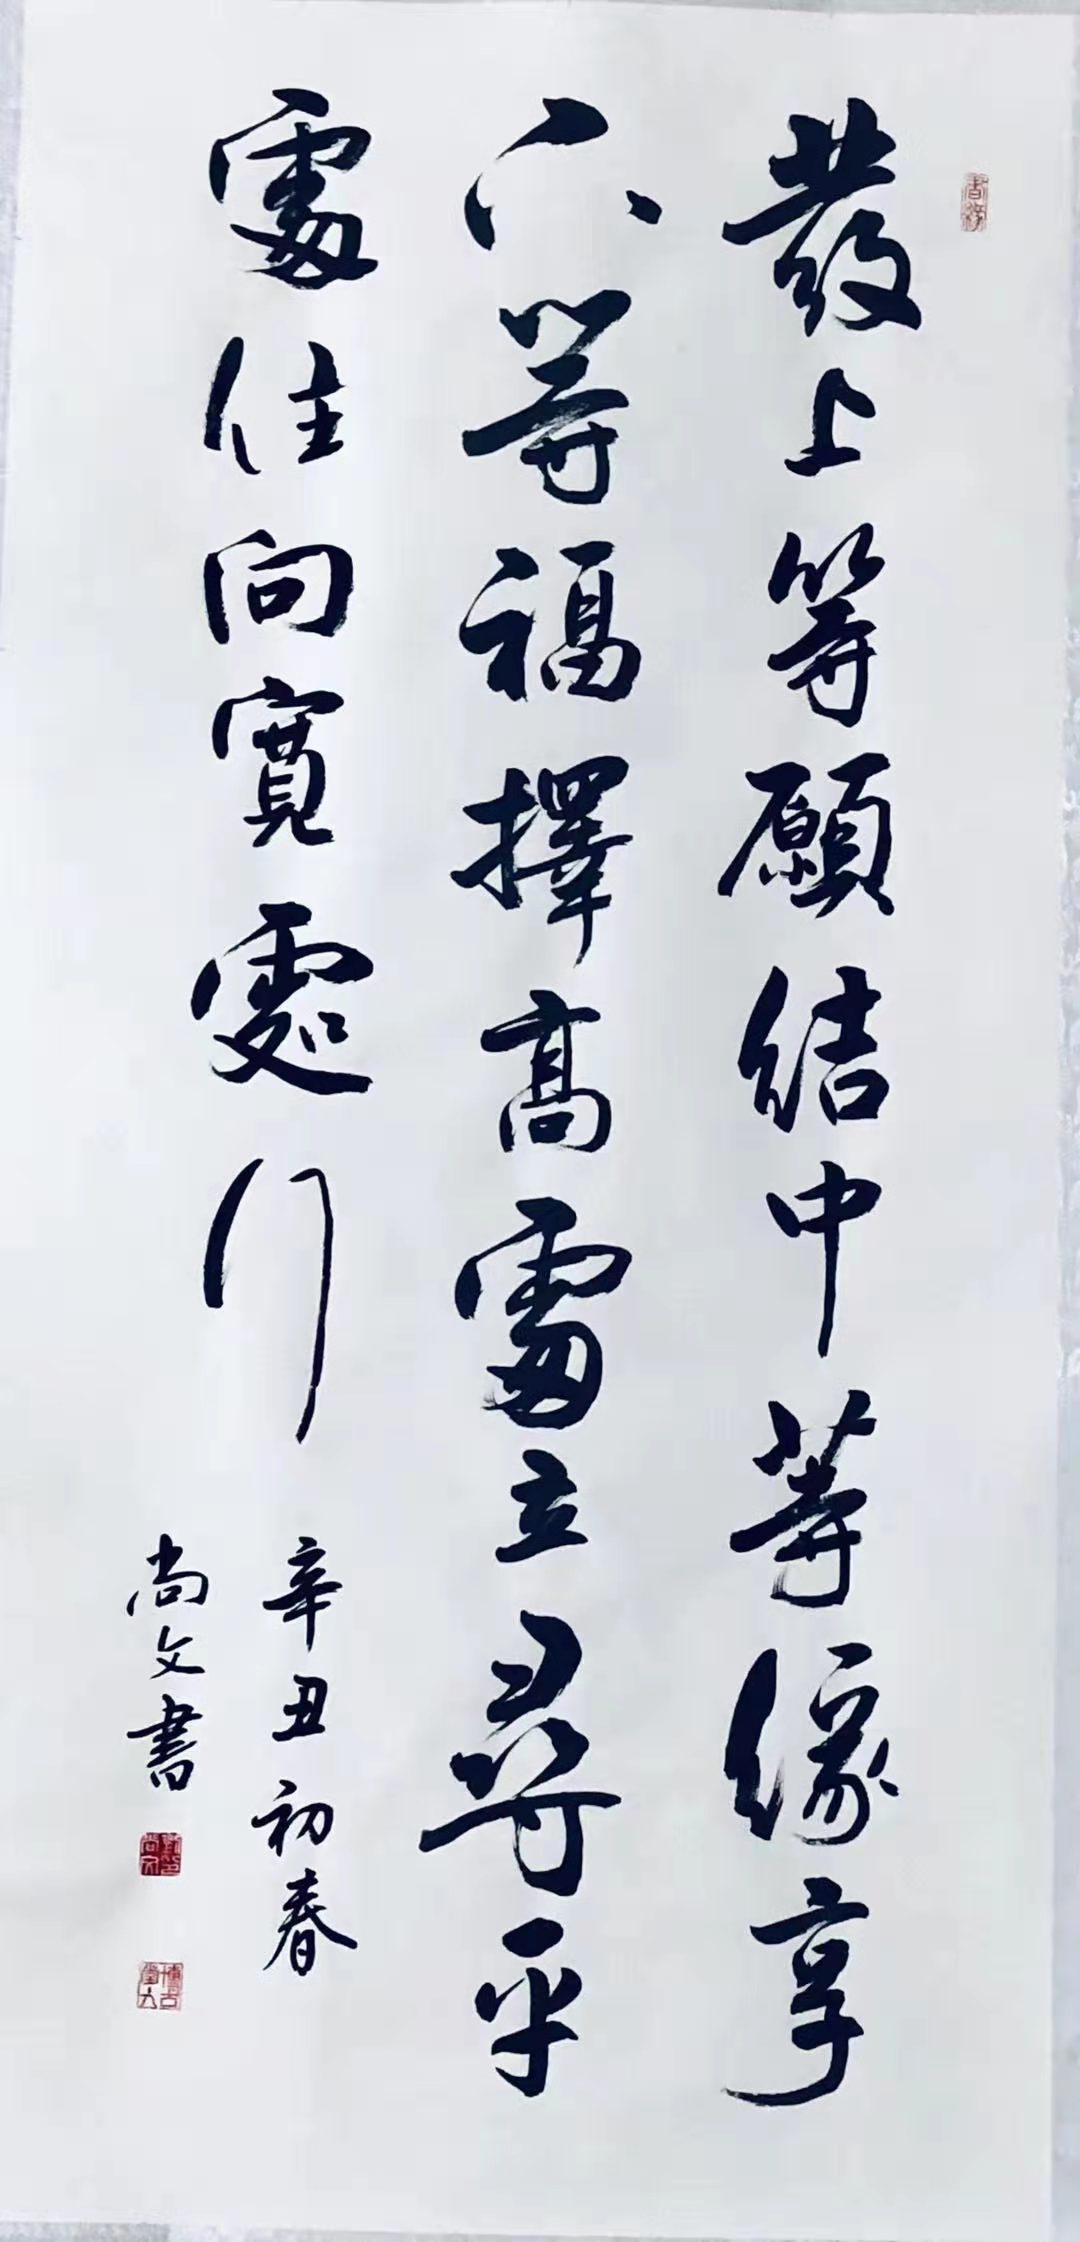 發上等願結中等緣享
下等福擇高處立尋平
處住向寬處行
辛丑初春
尚文書